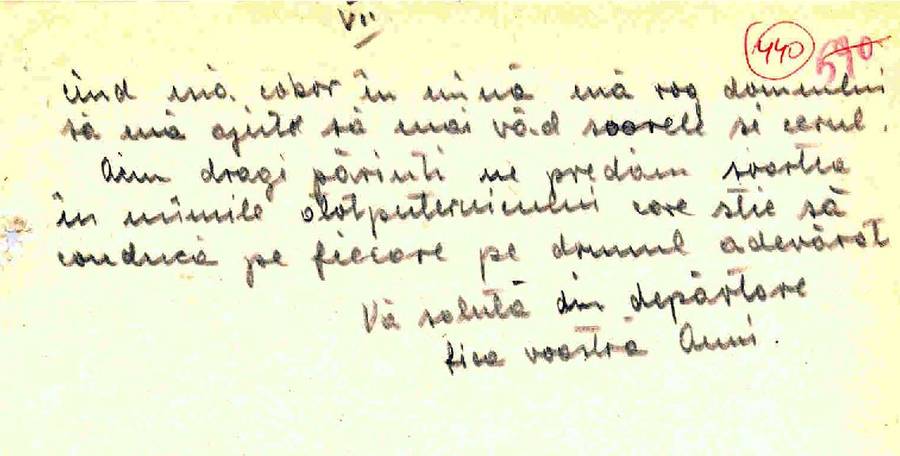 VII
440 590
cînd mă cobor în mină mă rog domnului
să mă ajute să mai văd soarele si cerul.
Acum dragi părinti ne predăm soarta
în mîinile atotputernicului care stie să
conducă pe fiecare pe drumul adevărat
Vă salută din depărtare
fica voastră Anni.